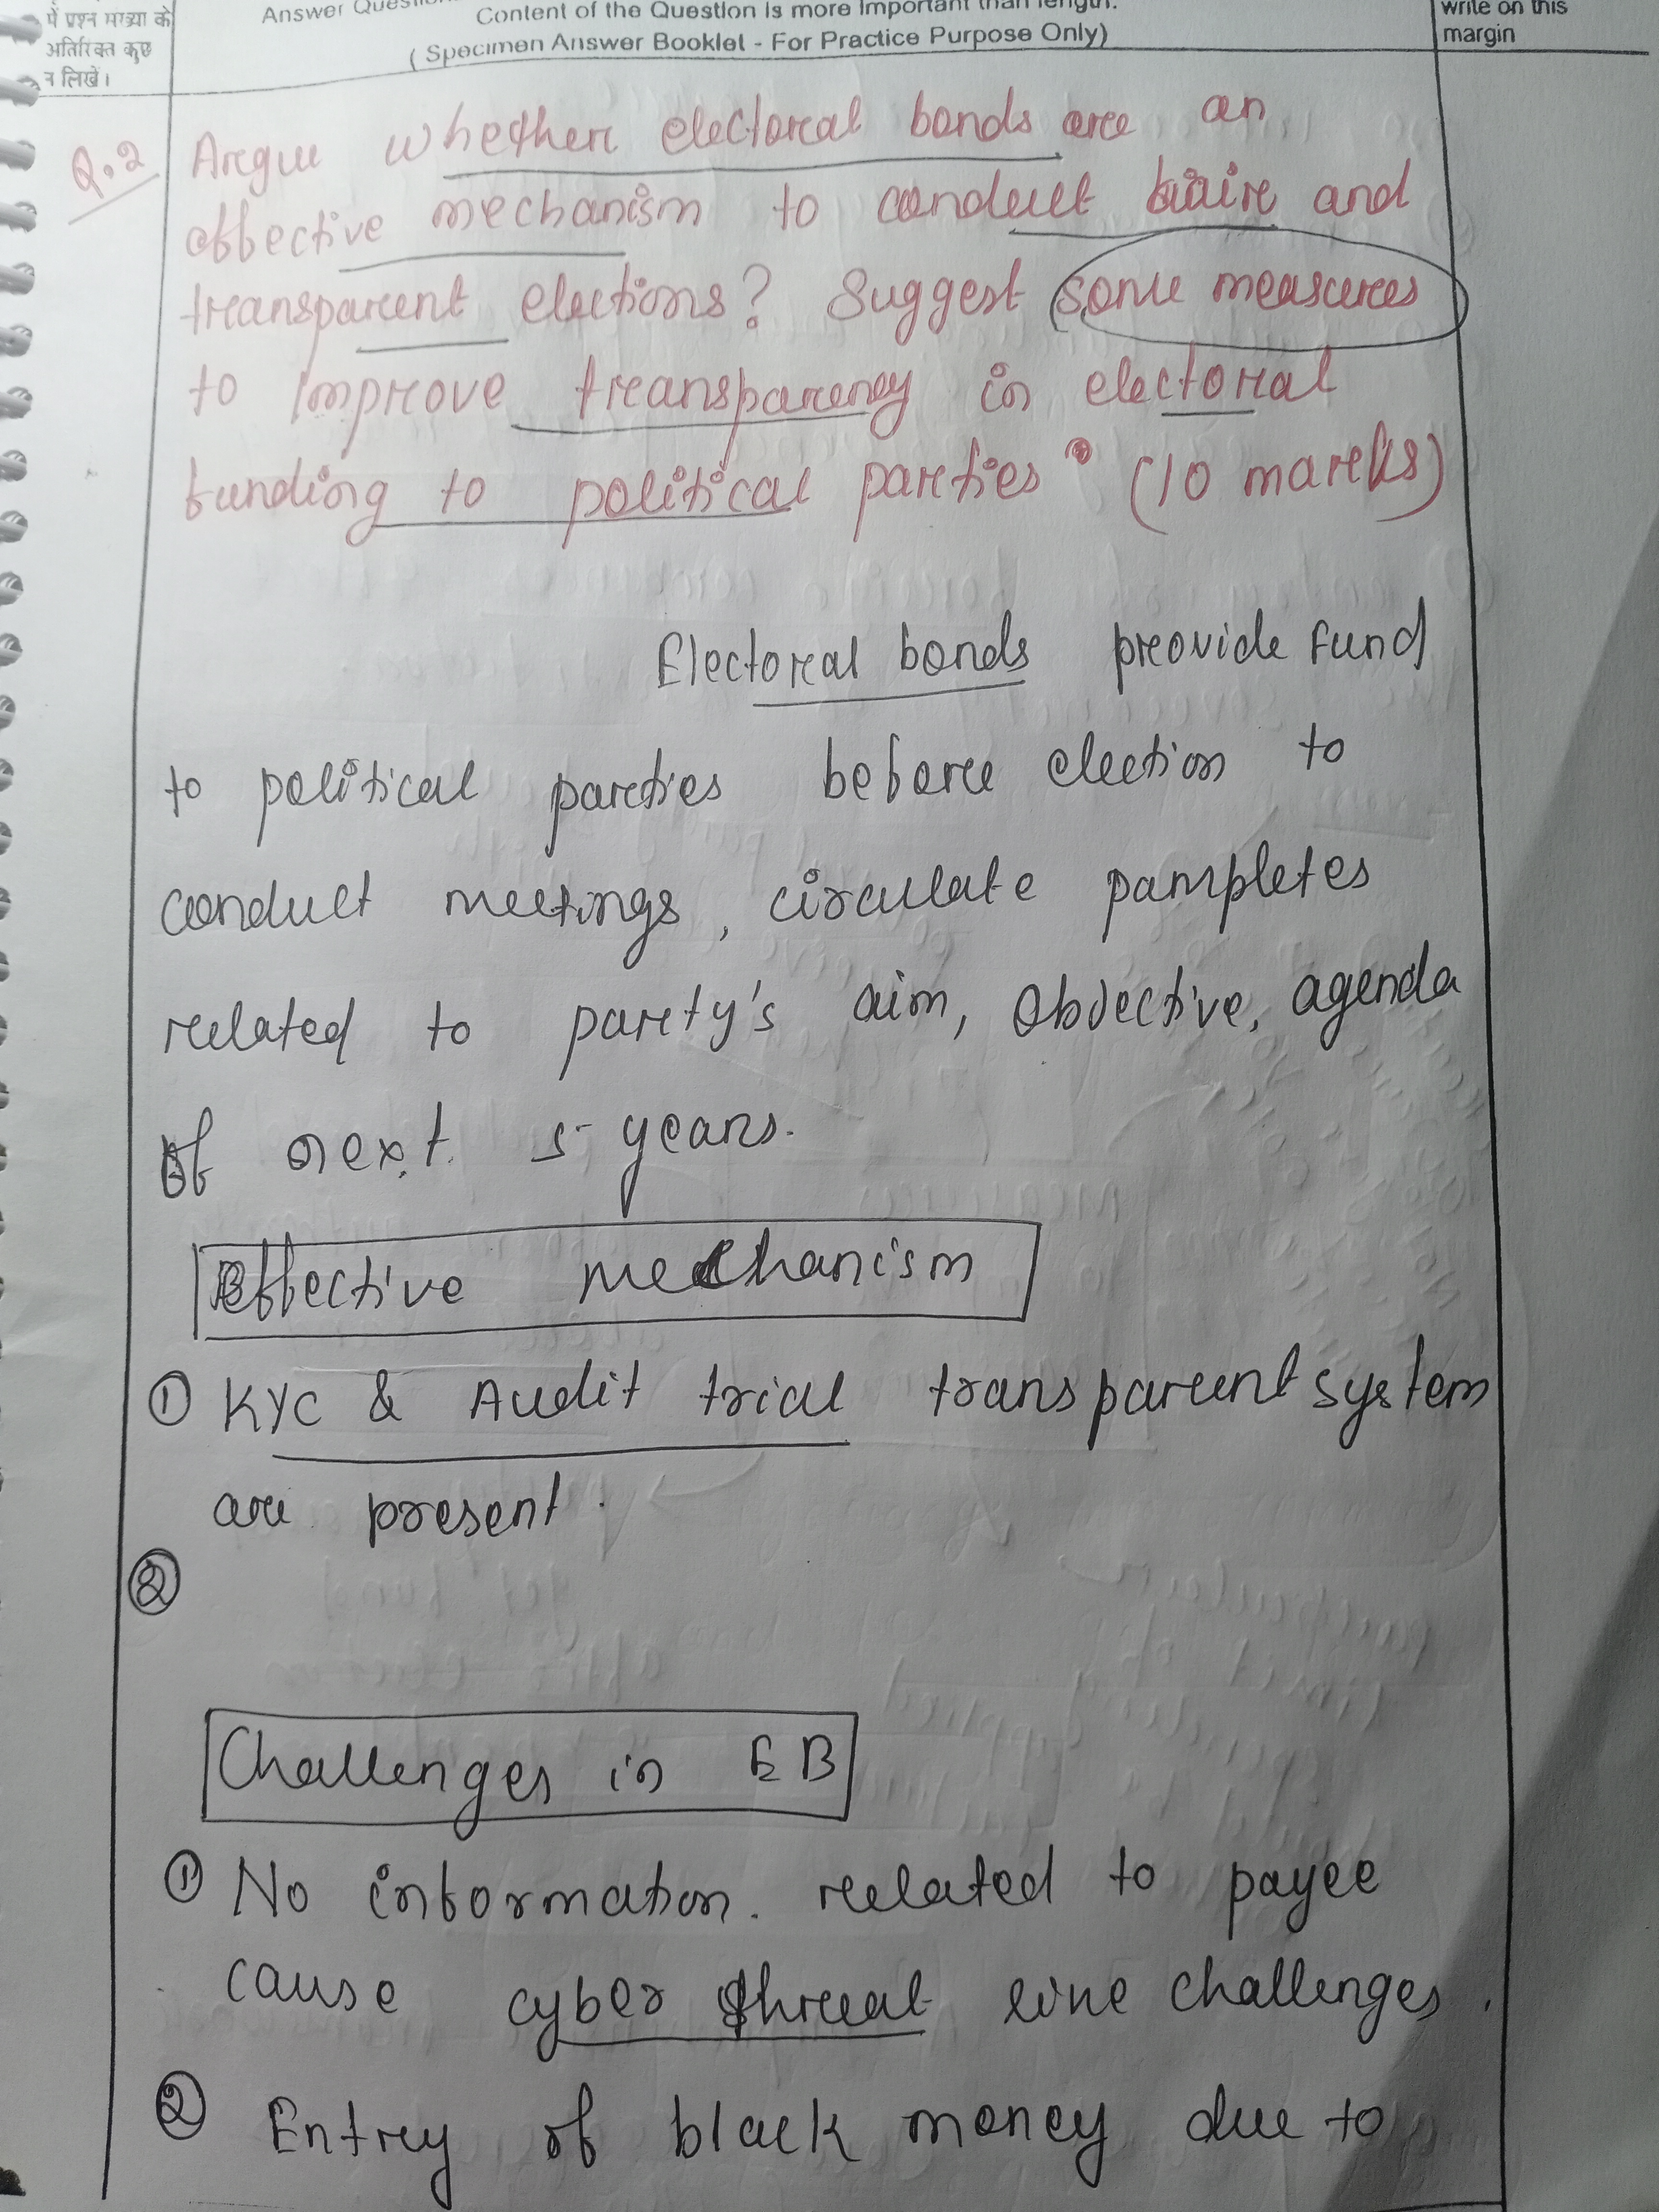 में प्रश्न संख्या के
अतिरिक्त कुछ
न लिखें।
Content of the Question is more Important than length.
(Specimen Answer Booklet - For Practice Purpose Only)
write on this
margin
Q.2 Argue whether electoral bonds are an
effective mechanism to conduct faire and
transparent elections? Suggest some measures
to improve transparency in electoral
funding to political parties. (10 marks)
Electoral bonds provide fund
to political parties before election to
conduct meetings, circulate pampletes
related to party's aim, objective, agenda
of next 5 years.
Effective mechanism
① KYC & Audit trial transparent system
are present.
②
Challenges in EB
① No information. related to payee
cause cyber threat like challenges.
② Entry of black money due to